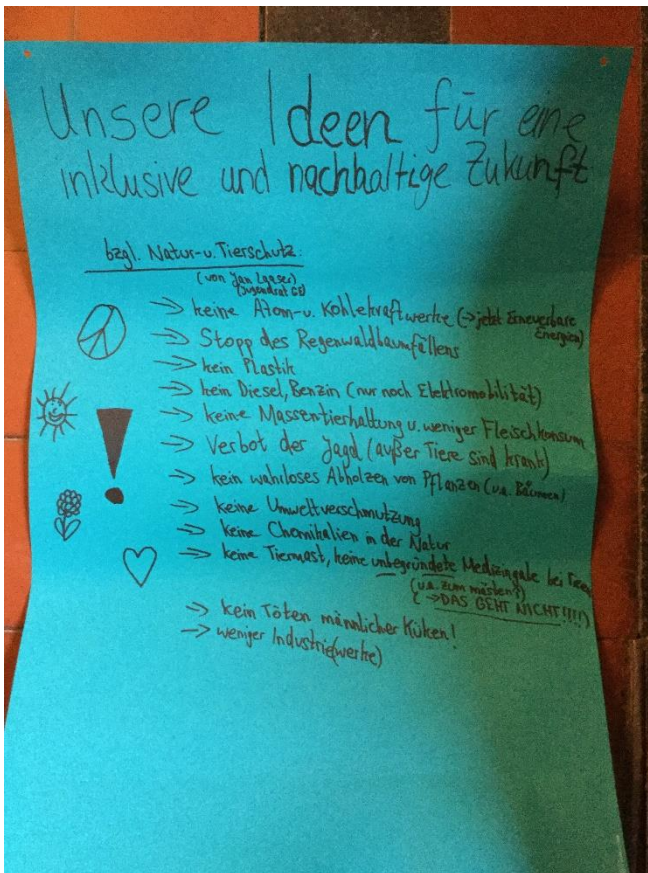 Unsere Ideen für eine
inklusive und nachhaltige Zukunft
bzgl. Natur- u. Tierschutz:
(von Jan
(Jugendrat GE)
=> keine Atom- u. Kohlekraftwerke (→ jetzt Erneuerbare
Energien)
=> Stopp des Regenwaldbaumfällens
=> kein Plastik
=> kein Diesel, Benzin (nur noch Elektromobilität)
=> keine Massentierhaltung u. weniger Fleischkonsum
=> Verbot der Jagd (außer Tiere sind krank)
=> kein wahlloses Abholzen von Pflanzen (v.a. Bäumen)
=> keine Umweltverschmutzung
=> keine Chemikalien in der Natur
=> keine Tiermast, keine unbegründete Medizingabe bei
(v.a. zum mästen?)
(→ DAS GEHT NICHT!!!!)
=> kein Töten männlicher Küken!
=> weniger Industrie(werke)